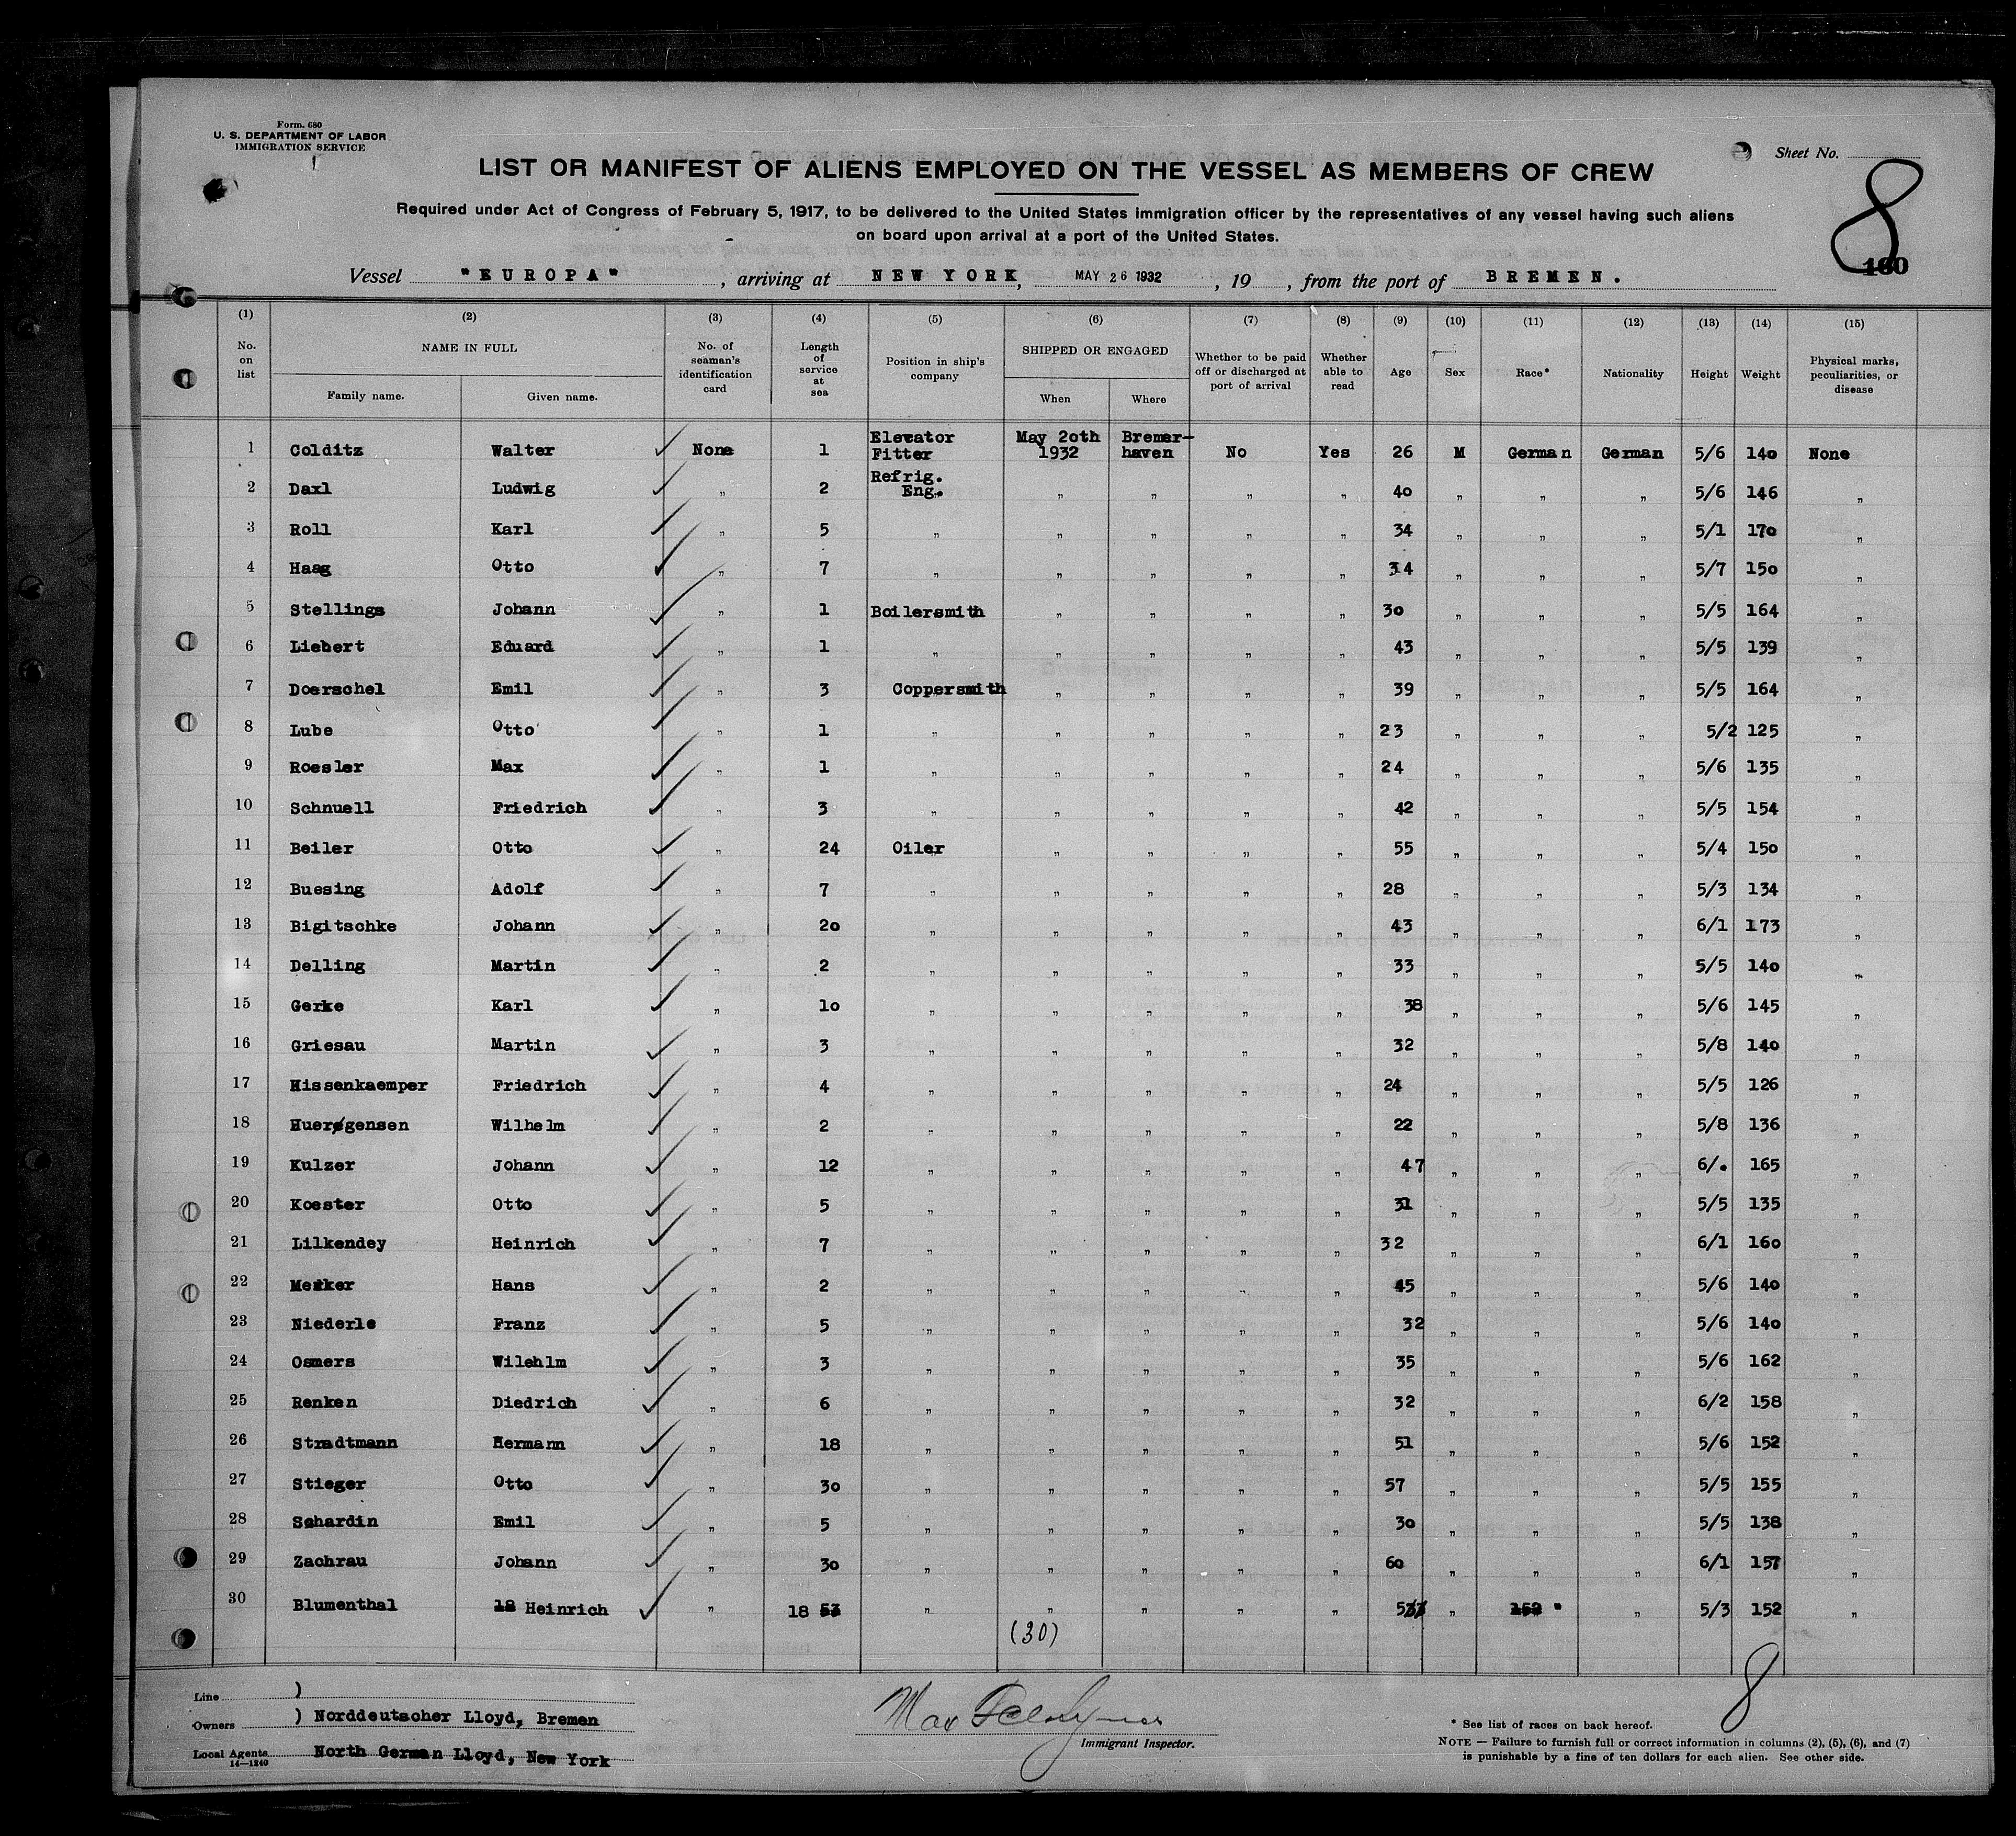 Form. 680
U. S. DEPARTMENT OF LABOR
IMMIGRATION SERVICE
Sheet No.
8
160
LIST OR MANIFEST OF ALIENS EMPLOYED ON THE VESSEL AS MEMBERS OF CREW
Required under Act of Congress of February 5, 1917, to be delivered to the United States immigration officer by the representatives of any vessel having such aliens
on board upon arrival at a port of the United States.
Vessel "EUROPA", arriving at NEW YORK, MAY 26 1932, 19 , from the port of BREMEN.
(1) No. on list (2) NAME IN FULL Family name. Given name. (3) No. of seaman's identification card (4) Length of service at sea (5) Position in ship's company (6) SHIPPED OR ENGAGED When Where (7) Whether to be paid off or discharged at port of arrival (8) Whether able to read (9) Age (10) Sex (11) Race* (12) Nationality (13) Height (14) Weight (15) Physical marks, peculiarities, or disease
1 Colditz Walter None 1 Elevator Fitter May 20th 1932 Bremerhaven No Yes 26 M German German 5/6 140 None
2 Daxl Ludwig " 2 Refrig. Eng. " " " " 40 " " " 5/6 146 "
3 Roll Karl " 5 " " " " " 34 " " " 5/1 170 "
4 Haag Otto " 7 " " " " " 34 " " " 5/7 150 "
5 Stellings Johann " 1 Boilersmith " " " " 30 " " " 5/5 164 "
6 Liebert Eduard " 1 " " " " " 43 " " " 5/5 139 "
7 Doerschel Emil " 3 Coppersmith " " " " 39 " " " 5/5 164 "
8 Lube Otto " 1 " " " " " 23 " " " 5/2 125 "
9 Roesler Max " 1 " " " " " 24 " " " 5/6 135 "
10 Schnuell Friedrich " 3 " " " " " 42 " " " 5/5 154 "
11 Beiler Otto " 24 Oiler " " " " 55 " " " 5/4 150 "
12 Buesing Adolf " 7 " " " " " 28 " " " 5/3 134 "
13 Bigitschke Johann " 20 " " " " " 43 " " " 6/1 173 "
14 Delling Martin " 2 " " " " " 33 " " " 5/5 140 "
15 Gerke Karl " 10 " " " " " 38 " " " 5/6 145 "
16 Griesau Martin " 3 " " " " " 32 " " " 5/8 140 "
17 Hissenkaemper Friedrich " 4 " " " " " 24 " " " 5/5 126 "
18 Huergensen Wilhelm " 2 " " " " " 22 " " " 5/8 136 "
19 Kulzer Johann " 12 " " " " " 47 " " " 6/. 165 "
20 Koester Otto " 5 " " " " " 31 " " " 5/5 135 "
21 Lilkendey Heinrich " 7 " " " " " 32 " " " 6/1 160 "
22 Merker Hans " 2 " " " " " 45 " " " 5/6 140 "
23 Niederle Franz " 5 " " " " " 32 " " " 5/6 140 "
24 Osmers Wilehlm " 3 " " " " " 35 " " " 5/6 162 "
25 Renken Diedrich " 6 " " " " " 32 " " " 6/2 158 "
26 Stradtmann Hermann " 18 " " " " " 51 " " " 5/6 152 "
27 Stieger Otto " 30 " " " " " 57 " " " 5/5 155 "
28 Schardin Emil " 5 " " " " " 30 " " " 5/5 138 "
29 Zachrau Johann " 30 " " " " " 60 " " " 6/1 157 "
30 Blumenthal 18 Heinrich " 18 53 " " " " " 53 " 152 " " 5/3 152 "
(30)
8
Line )
Owners ) Norddeutscher Lloyd, Bremen
Local Agents North German Lloyd, New York
14—1240
Max
Immigrant Inspector.
* See list of races on back hereof.
NOTE — Failure to furnish full or correct information in columns (2), (5), (6), and (7)
is punishable by a fine of ten dollars for each alien. See other side.